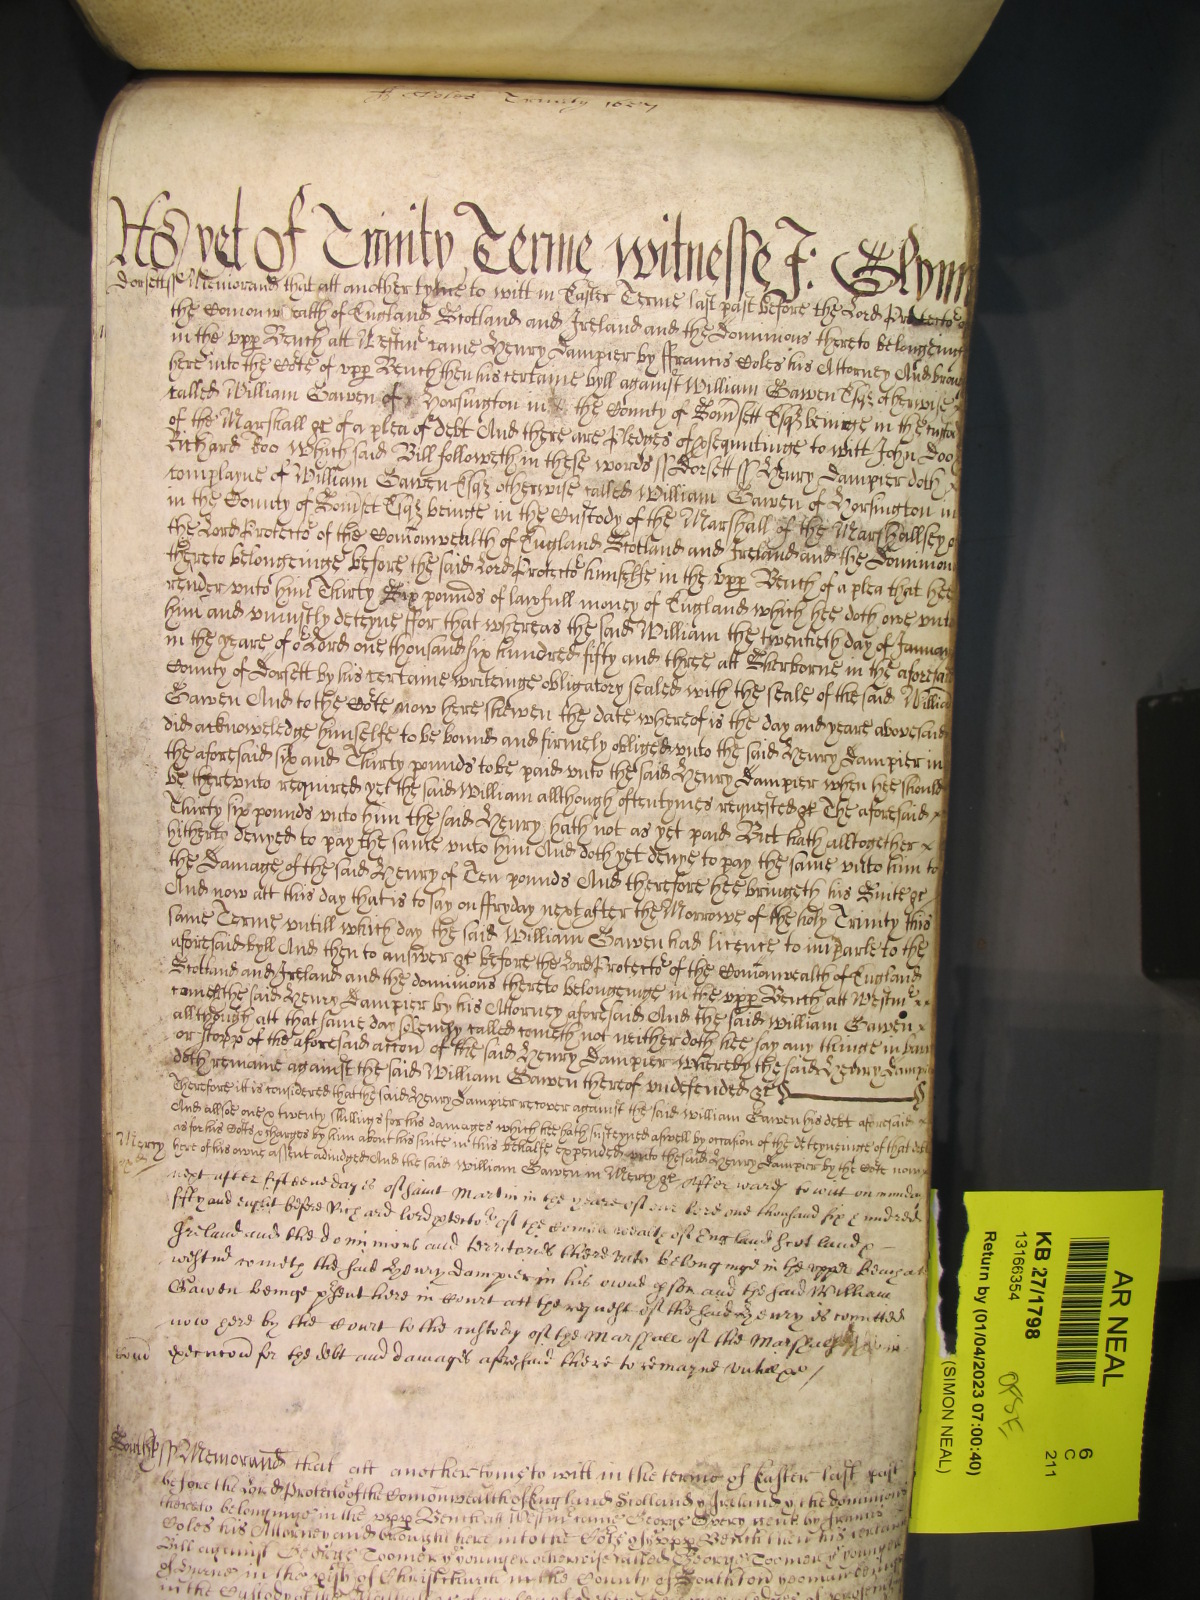 Coles Trinity 1657
As yet of Trinity Terme witnesse J: Glynn
Dorsett ss Memorand that att another tyme to witt in Easter Terme last past before the Lord Protector of
the Comonwealth of England Scotland and Ireland and the Dominions thereto belonginge
in the upp Bench att Westmr came Henry Dampier by ffrancis Coles his Attorney And brou
here into the Cote of upp Bench then his certaine byll against William Gawen Esqz otherwise
called William Gawen of Horsington in the County of Somsett Esqz beinge in the custod
of the Marshall &c of a plea of debt And there are Pledges of psequutinge to witt John Doo
Richard Roo Which said Bill followeth in these words ss Dorsett ss Henry Dampier doth
complayne of William Gawen Esqz otherwise called William Gawen of Horsington in
in the County of Somset Esqz beinge in the Custody of the Marshall of the Marshallsey o
the Lord Protector of the Comonwealth of England Scotland and Ireland and the Dominion
thereto belonginge before the said Lord Protector himselfe in the upp Bench of a plea that hee
render unto him Thirty Six pounds of lawfull money of England which hee doth owe unto
him and uniustly deteyne ffor that whereas the said William the twentieth day of January
in the yeare of or Lord one thousand six hundred fifty and three att Sherborne in the aforesaid
County of Dorsett by his certaine writeinge obligatory sealed with the seale of the said William
Gawen And to the Cote now here shewen the date whereof is the day and yeare abovesaid
did acknowledge himselfe to be bound and firmely obliged unto the said Henry Dampier in
the aforesaid six and Thirty pounds to be paid unto the said Henry Dampier when hee should
be thereunto required yet the said William allthough oftentymes requested &c The aforesaid
Thirty six pounds unto him the said Henry hath not as yet paid But hath alltogether
hitherto denyed to pay the same unto him And doth yet denye to pay the same unto him to
the Damage of the said Henry of Ten pounds And therefore hee bringeth his Suite &c
And now att this day that is to say on ffryday next after the Morrowe of the holy Trinity this
same Terme untill which day the said William Gawen had licence to imparle to the
aforesaid byll And then to answer &c before the Lord Protector of the Comonwealth of England
Scotland and Ireland and the dominions thereto belonginge in the upp Bench att Westmr
cometh the said Henry Dampier by his Attorney aforesaid And the said William Gawen
allthough att that same day solemly called cometh not neither doth hee say any thinge in barr
or stopp of the aforesaid accon of the said Henry Dampier whereby the said Henry Dampier
doth remaine against the said William Gawen thereof undefended &c
Therefore it is considered that the said Henry Dampier recover against the said William Gawen his debt aforesaid
And allsoe one & twenty shillings for his damages which hee hath susteyned aswell by occasion of the deteyneinge of that debt
as for his Costs & charges by him about his suite in this behalfe expended unto the said Henry Dampier by the Cote now
Mercy
here of his owne assent adiudged And the said William Gawen in Mercy &c Afterwards to witt on munday
next after fifteene dayes of saint Martin in the yeare of our lord one thousand six hundred
fifty and eight before Richard lord ptector of the Comonwealth of England Scotland &
Ireland and the dominions and territories there unto belonginge in the upper Bench att
westmr cometh the said Henry Dampier in his owne pson and the said William
Gawen beinge psent here in Court att the request of the said Henry is comitted
now here by the Court to the custody of the Marshall of the Marshalsey in
execucon for the debt and damages aforesaid there to remayne untill &c
Southt ss Memorand that att another tyme to witt in the terme of Easter last past
before the Lord Protector of the Comonwealth of England Scotland & Ireland & the dominions
thereto belonginge in the upp Bench att Westmr came George by Francis
Coles his Attorney and brought here into the Cote of upp Bench then his certaine
Bill against George Toomer younger otherwise called George Toomer younger
of in the pish of Christchurch in the County of Southton yeoman beinge
in the Custody of the
AR NEAL
KB 27/1798
13166354
Return by (01/04/2023 07:00:40)
(SIMON NEAL)
6
C
211